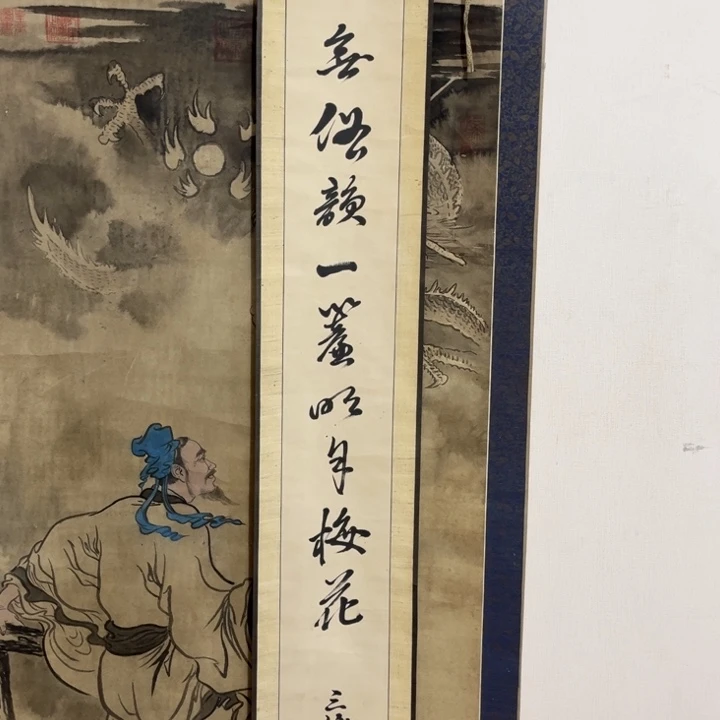 無俗韻一簾明月梅花
三